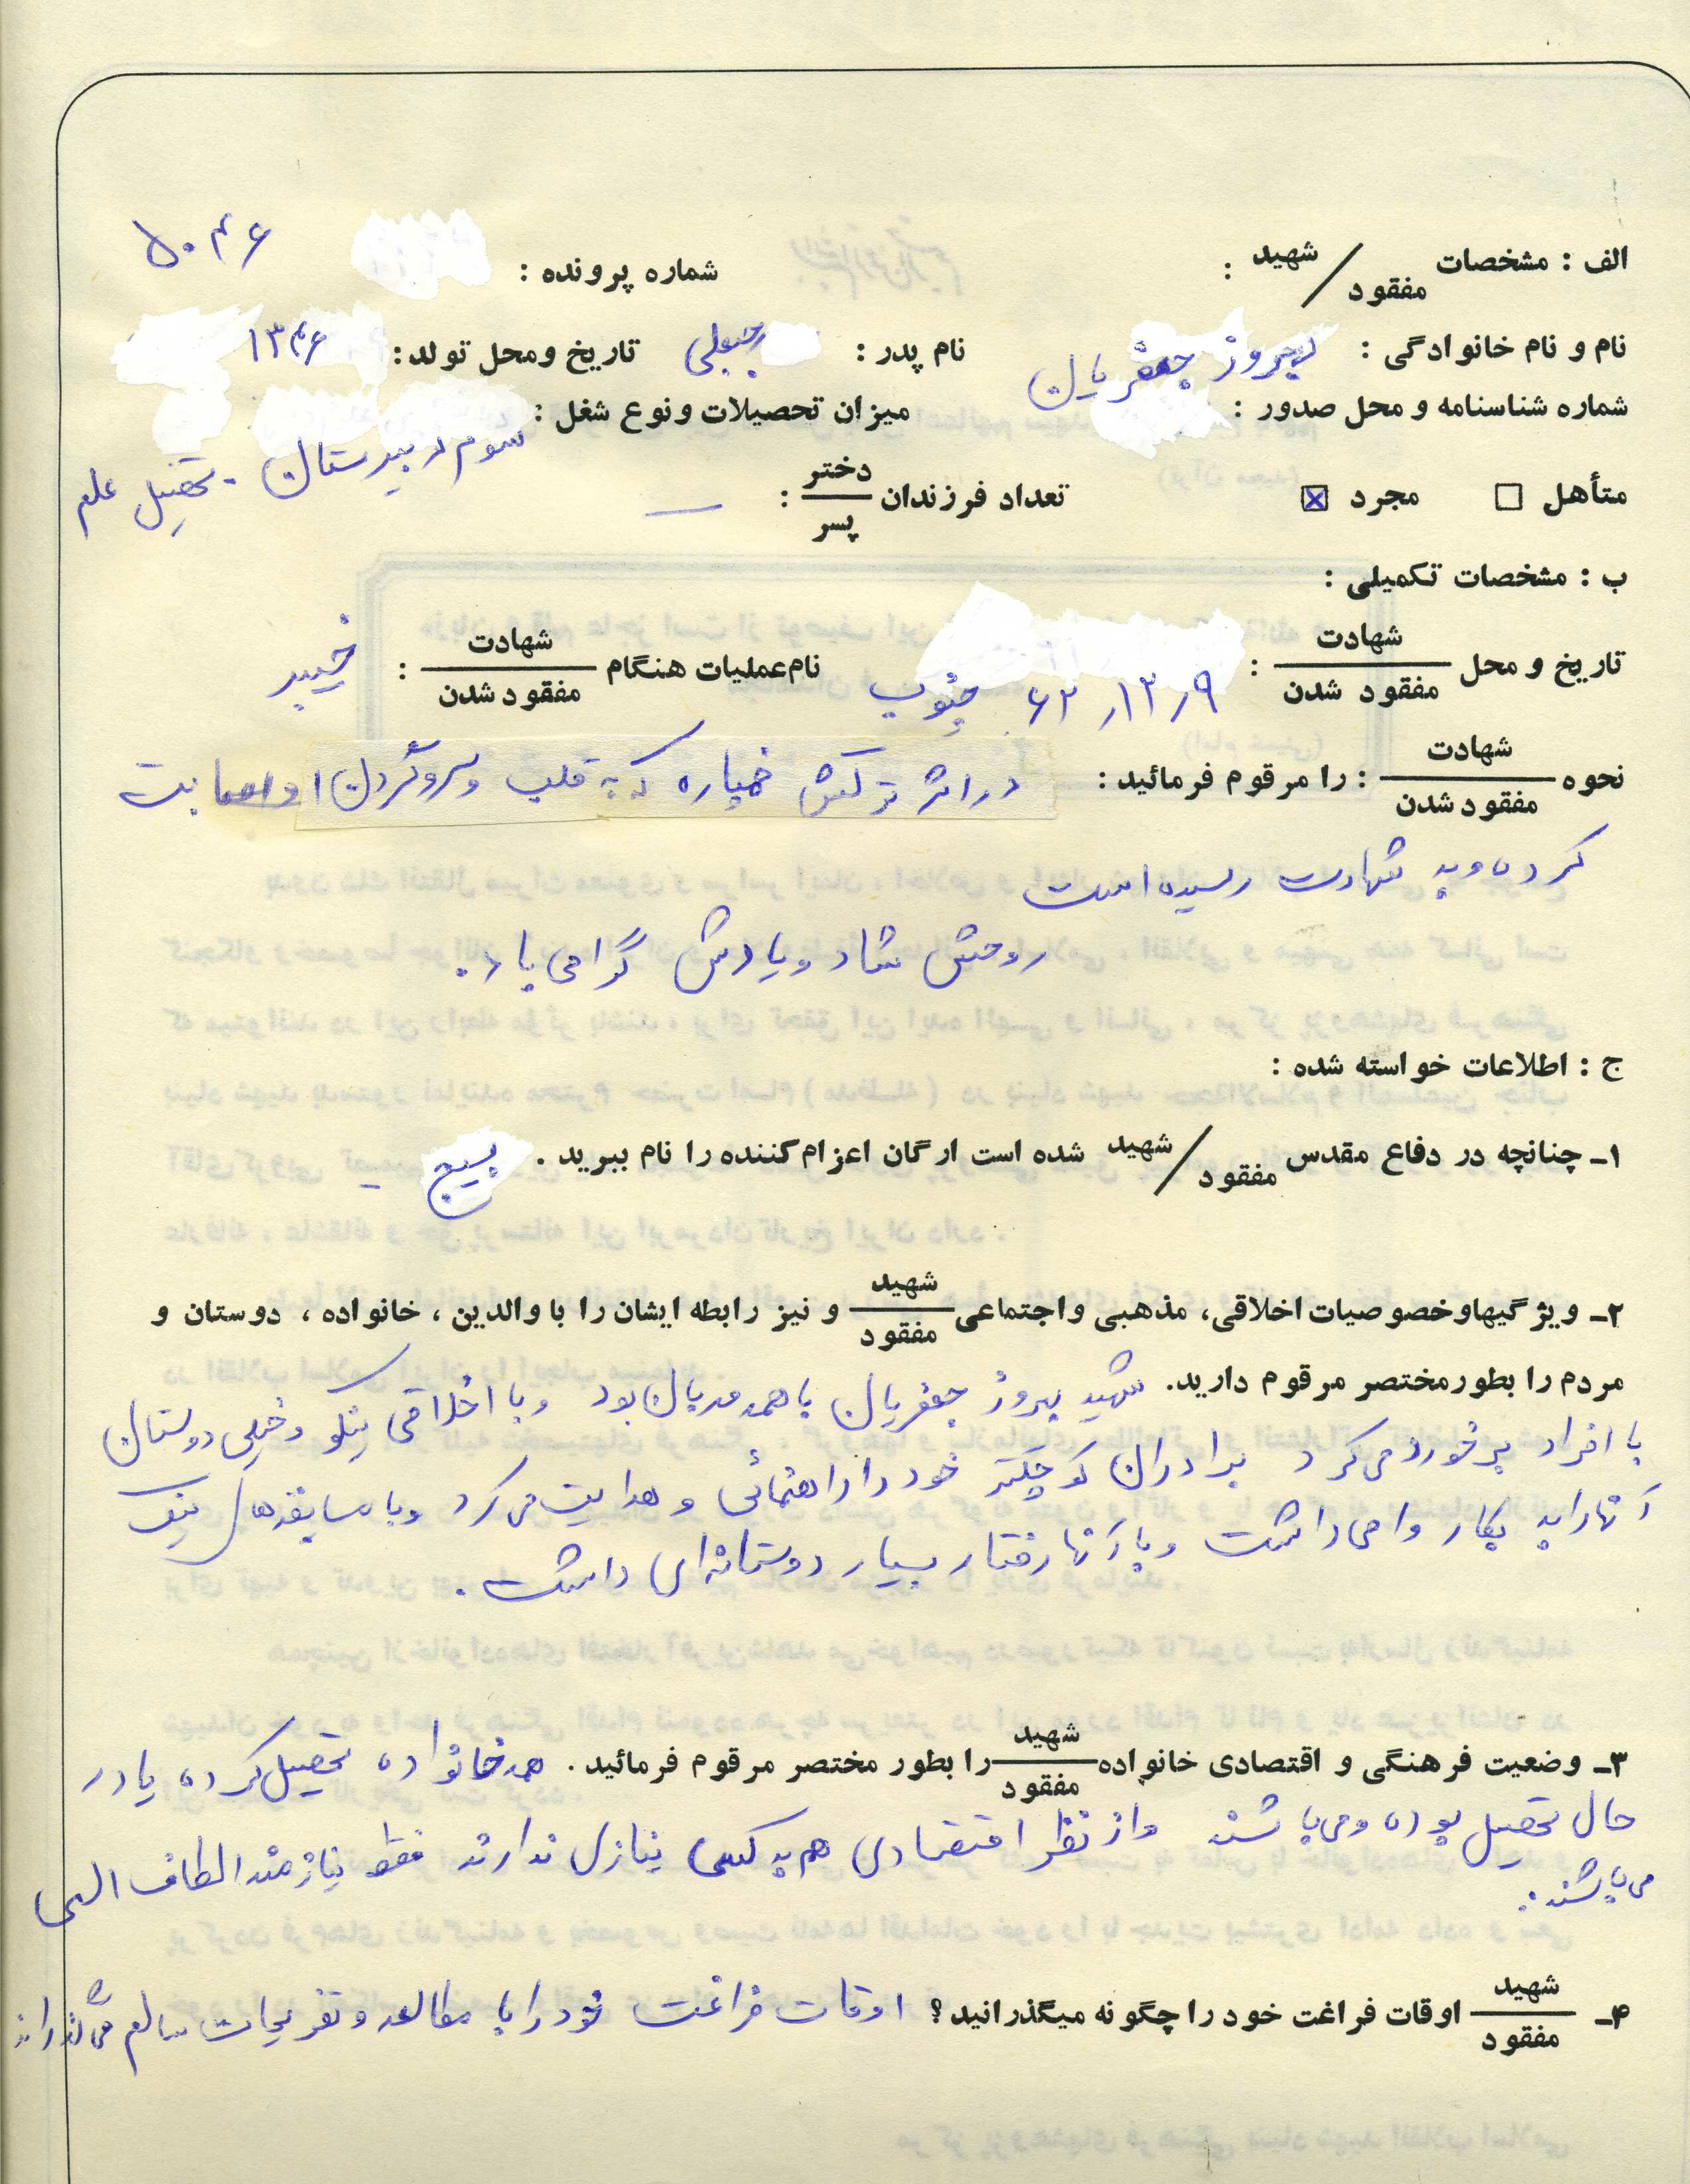 الف : مشخصات شهید / مفقود :
شماره پرونده : ۵۰۴۶
نام و نام خانوادگی : بهروز جعفریان نام پدر : رجبعلی تاریخ ومحل تولد : ۱۳۴۶
شماره شناسنامه و محل صدور : میزان تحصیلات ونوع شغل :
سوم دبیرستان - تحصیل علم
متأهل ☐ مجرد ☒ تعداد فرزندان دختر / پسر : —
ب : مشخصات تکمیلی :
تاریخ و محل شهادت / مفقود شدن : ۶۲/۱۲/۹ جنوب نام عملیات هنگام شهادت / مفقود شدن : خیبر
نحوه شهادت / مفقود شدن : را مرقوم فرمائید : در اثر ترکش خمپاره که به قلب و سر و گردن او اصابت
کرده و به شهادت رسیده است
روحش شاد و یادش گرامی باد.
ج : اطلاعات خواسته شده :
۱- چنانچه در دفاع مقدس شهید / مفقود شده است ارگان اعزام کننده را نام ببرید . بسیج
۲- ویژگیهاوخصوصیات اخلاقی، مذهبی واجتماعی شهید / مفقود و نیز رابطه ایشان را با والدین ، خانواده ، دوستان و
مردم را بطور مختصر مرقوم دارید. شهید بهروز جعفریان با همه مهربان بود و با اخلاقی نیکو و خیلی دوستان
با افراد برخورد می کرد برادران کوچکتر خود را راهنمائی و هدایت می کرد و با
آنها را به بکار وا می داشت و با آنها رفتار بسیار دوستانه ای داشت .
۳- وضعیت فرهنگی و اقتصادی خانواده شهید / مفقود را بطور مختصر مرقوم فرمائید . همه خانواده تحصیل کرده یا در
حال تحصیل بوده و می باشند و از نظر اقتصادی هم به کسی نیازی ندارند فقط نیازمند الطاف الهی
می باشند.
۴- شهید / مفقود اوقات فراغت خود را چگونه میگذرانید؟ اوقات فراغت خود را با مطالعه و تفریحات سالم می گذراند